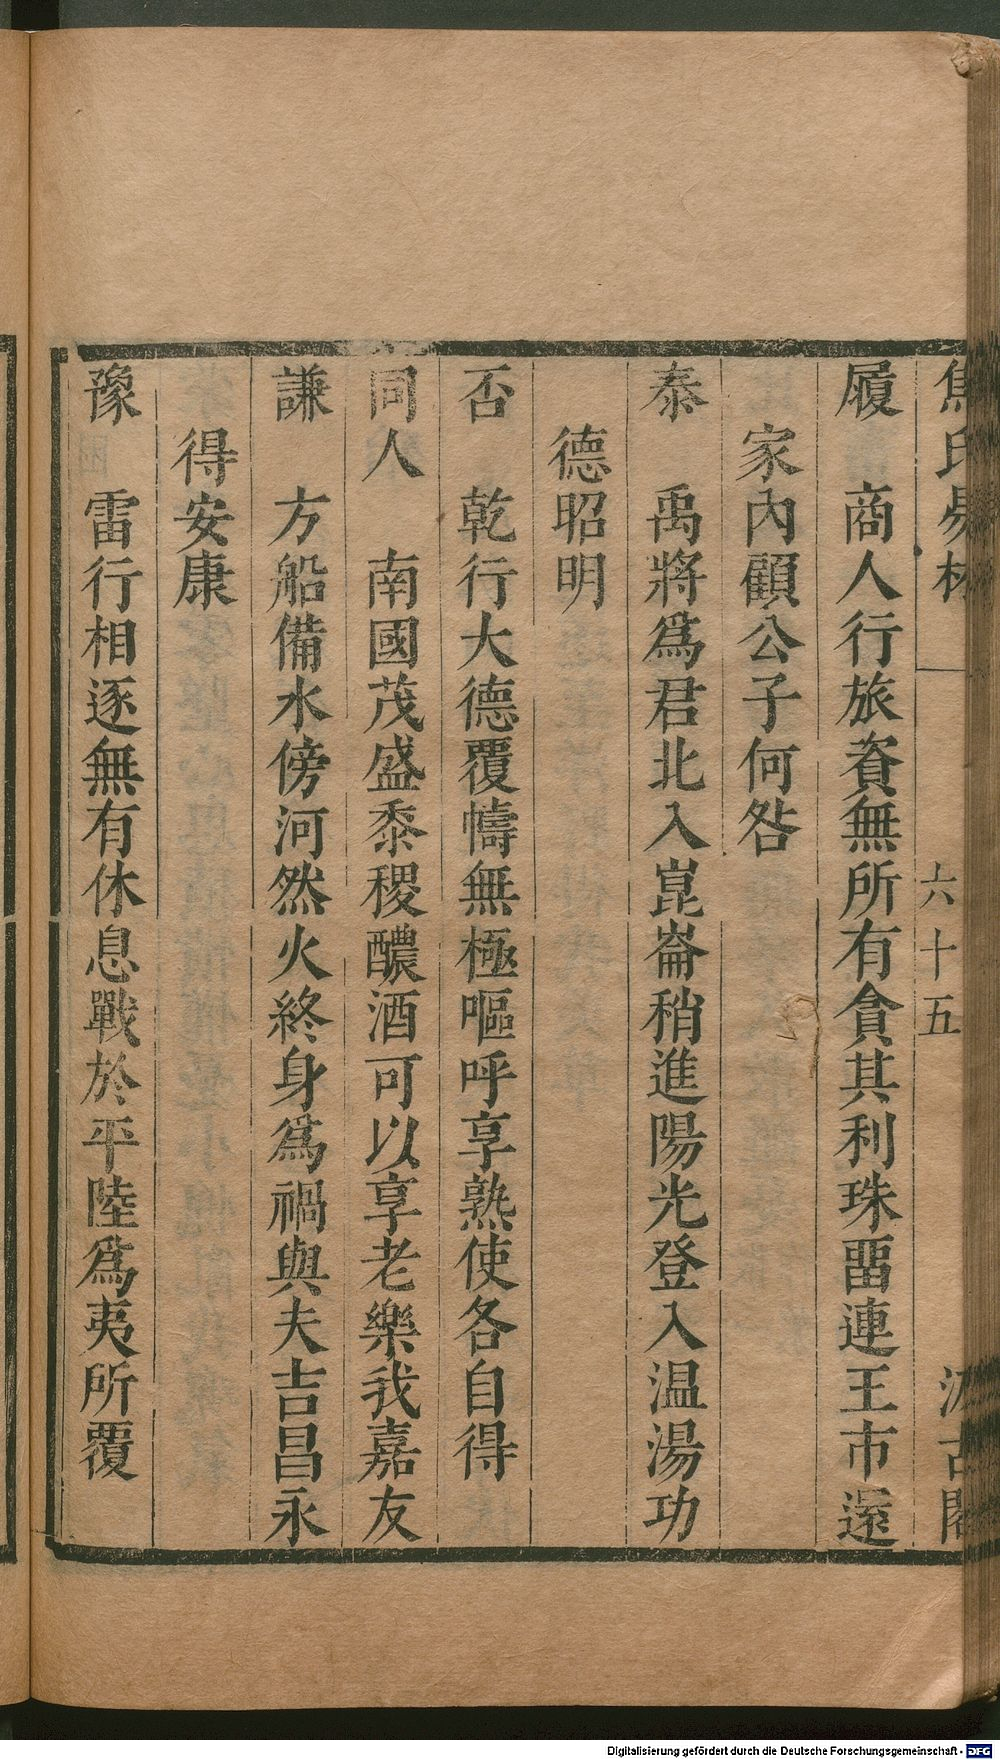 焦氏易林 一 六十五 汲古閣
履 商人行旅資無所有貪其利珠畱連王市還
家內顧公子何咎
泰 禹將爲君北入崑崙稍進陽光登入温湯功
德昭明
否 乾行大德覆幬無極嘔呼享熟使各自得
同人 南國茂盛黍稷醲酒可以享老樂我嘉友
謙 方船備水傍河然火終身爲禍與夫吉昌永
得安康
豫 雷行相逐無有休息戰於平陸爲夷所覆
Digitalisierung gefördert durch die Deutsche Forschungsgemeinschaft - DFG